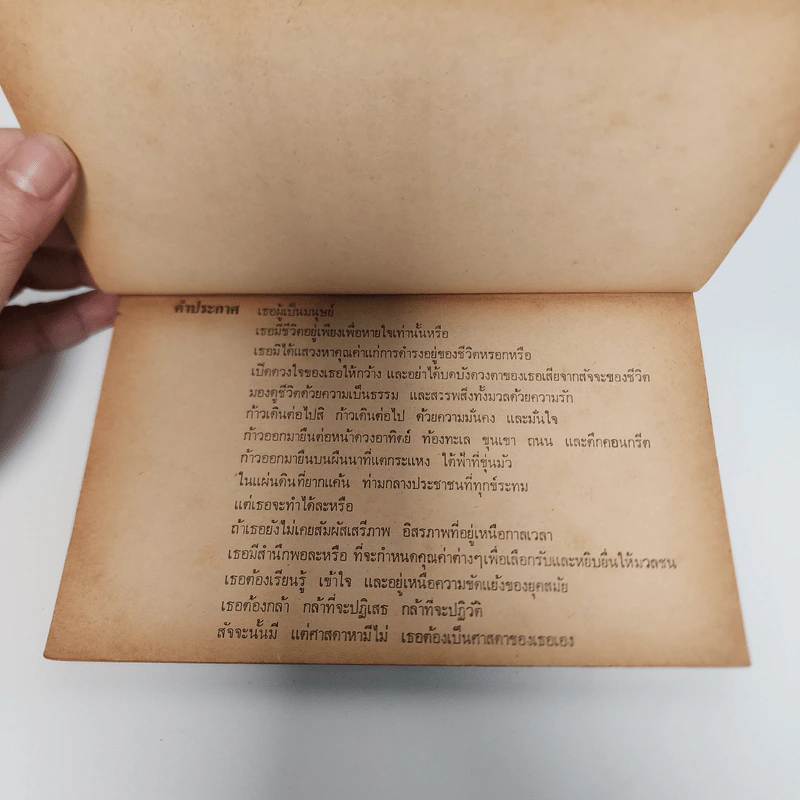 คำประกาศ เธอผู้เป็นมนุษย์
เธอมีชีวิตอยู่เพียงเพื่อหายใจเท่านั้นหรือ
เธอมิได้แสวงหาคุณค่าแก่การดำรงอยู่ของชีวิตหรอกหรือ
เบิดดวงใจของเธอให้กว้าง และอย่าได้บดบังดวงตาของเธอเสียจากสัจจะของชีวิต
มองดูชีวิตด้วยความเป็นธรรม และสรรพสิ่งทั้งมวลด้วยความรัก
ก้าวเดินต่อไปสิ ก้าวเดินต่อไป ด้วยความมั่นคง และมั่นใจ
ก้าวออกมายืนต่อหน้าดวงอาทิตย์ ท้องทะเล ขุนเขา ถนน และตึกคอนกรีต
ก้าวออกมายืนบนผืนนาที่แตกระแหง ใต้ฟ้าที่ขุ่นมัว
ในแผ่นดินที่ยากแค้น ท่ามกลางประชาชนที่ทุกข์ระทม
แต่เธอจะทำได้ละหรือ
ถ้าเธอยังไม่เคยสัมผัสเสรีภาพ อิสรภาพที่อยู่เหนือกาลเวลา
เธอมีสำนึกพอละหรือ ที่จะกำหนดคุณค่าต่างๆเพื่อเลือกรับและหยิบยื่นให้มวลชน
เธอต้องเรียนรู้ เข้าใจ และอยู่เหนือความขัดแย้งของยุคสมัย
เธอต้องกล้า กล้าที่จะปฏิเสธ กล้าที่จะปฏิวัติ
สัจจะนั้นมี แต่ศาสดาหามีไม่ เธอต้องเป็นศาสดาของเธอเอง